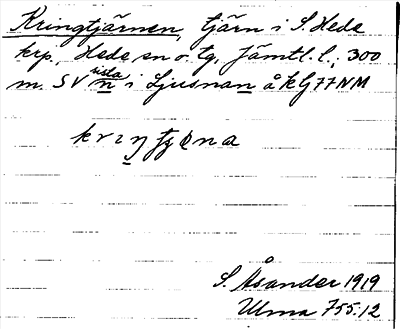 Kringtjärnen, tjärn i S. Heda
krp., Hede sn o. tg, Jämtl. l., 300
m. SV sista n i Ljusnan åkG77NM
krıŋtjɵna
S. Åsander 1919
Ulma 755:12